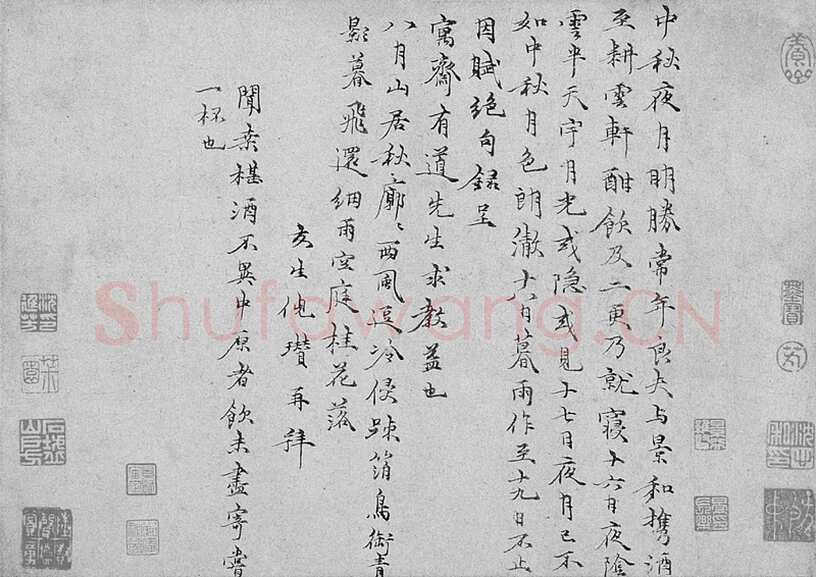 中秋夜月明勝常年良夫与景和攜酒
至耕雲軒酣飲及二更乃就寢十六日夜陰
雲半天宇月光或隱或見十七日夜月已不
如中秋月色朗澈十八日暮雨作至十九日不止
因賦絕句錄呈
寓齋有道先生求教益也
八月山居秋廓〻西風逗冷侵踈箔鳥銜青
影暮飛還細雨空庭桂花落
友生倪瓚再拜
聞桒椹酒不異中原者飲未盡寄嘗
一杯也
Shufawang.CN